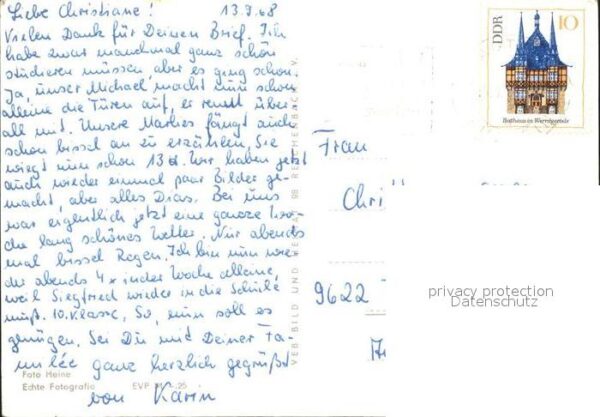 Liebe Christiane! 13.9.68
Vielen Dank für Deinen Brief. Ich
habe zwar manchmal ganz schön
studieren müssen, aber es ging schon.
Ja, unser Michael macht nun schon
alleine die Türen auf, er rennt über-
all mit. Unsere fängt auch
schon bissel an zu erzählen, Sie
wiegt nun schon 13 Wir haben jetzt
auch wieder einmal paar Bilder ge-
macht, aber alles Dias. Bei uns
war eigentlich jetzt eine ganze Wo-
che lang schönes Wetter. Nur abends
mal bissel Regen. Ich bin nun wie-
der abends 4x in der Woche alleine,
weil Siegfried wieder in die Schule
muß. 10. Klasse, So, nun soll es
genügen. Sei Du und Deiner Fa-
milie ganz herzlich gegrüßt
von Karin
Foto Heine
Echte Fotografio EVP
VEB BILD UND HEIMAT REICHENBACH I. V.
DDR 10
Rathaus in Wernigerode
Frau
Chri
9622
privacy protection
Datenschutz